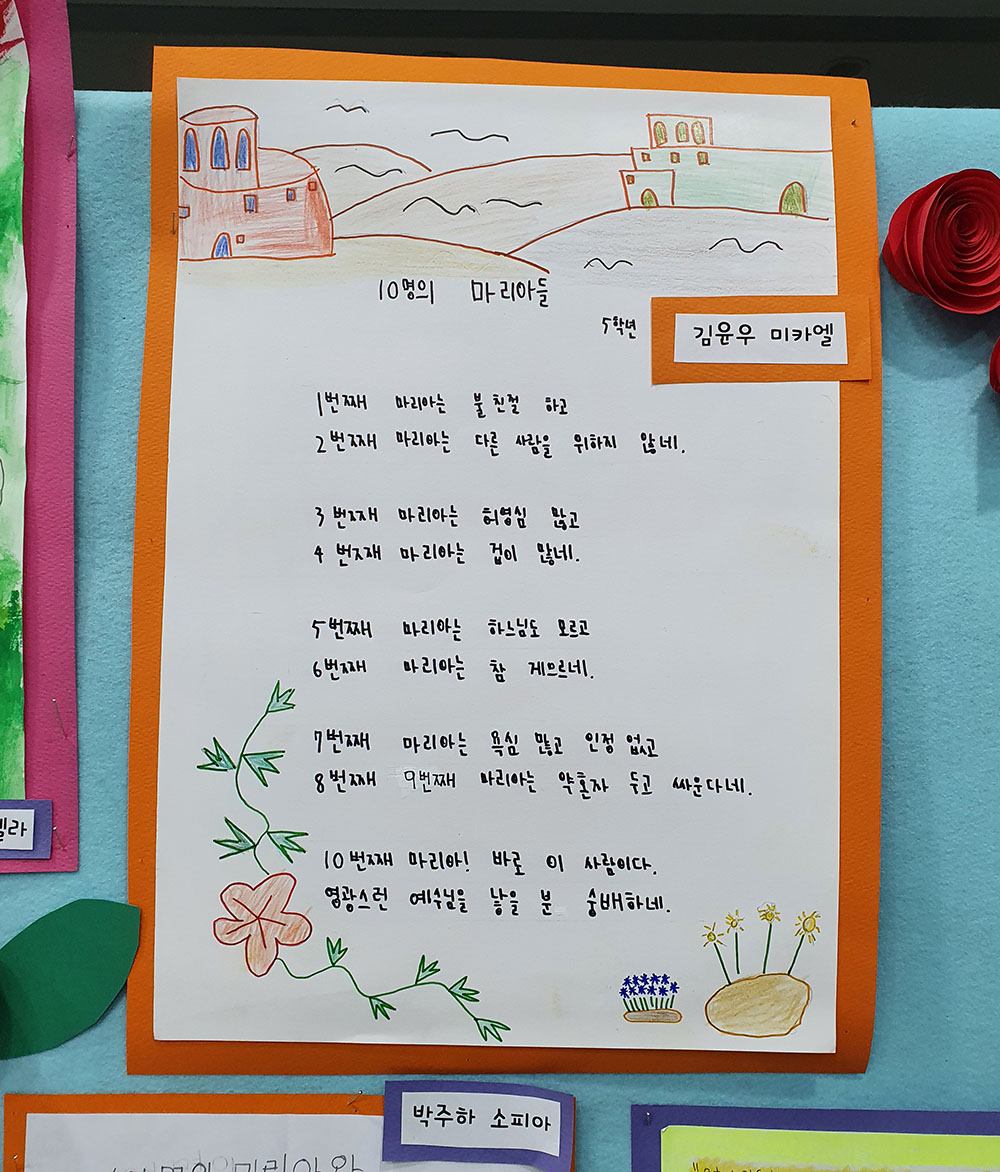 10명의 마리아들
5학년 김윤우 미카엘
1번째 마리아는 불친절 하고
2번째 마리아는 다른 사람을 위하지 않네.
3번째 마리아는 허영심 많고
4번째 마리아는 겁이 많네.
5번째 마리아는 하느님도 모르고
6번째 마리아는 참 게으르네.
7번째 마리아는 욕심 많고 인정 없고
8번째 9번째 마리아는 약혼자 두고 싸운다네.
10번째 마리아! 바로 이 사람이다.
영광스런 예수님을 낳을 분 숭배하네.
벨라
박주하 소피아